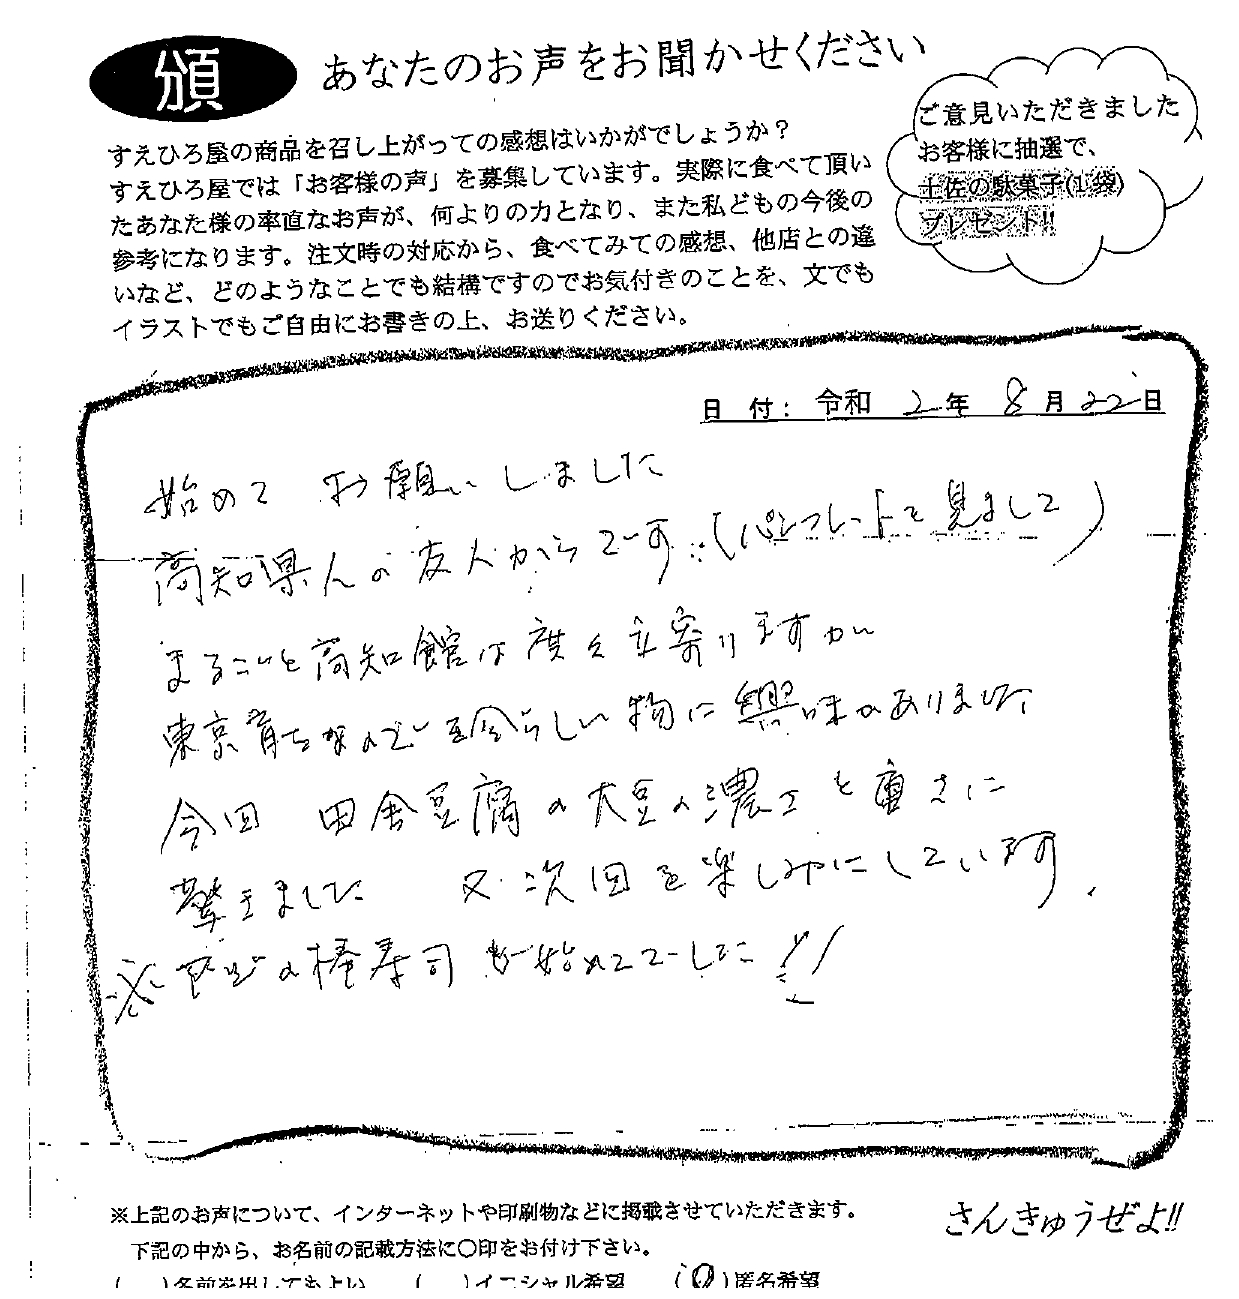 頒
あなたのお声をお聞かせください
ご意見いただきました
お客様に抽選で、
土佐の駄菓子(1袋)
プレゼント!!
すえひろ屋の商品を召し上がっての感想はいかがでしょうか？
すえひろ屋では「お客様の声」を募集しています。実際に食べて頂い
たあなた様の率直なお声が、何よりの力となり、また私どもの今後の
参考になります。注文時の対応から、食べてみての感想、他店との違
いなど、どのようなことでも結構ですのでお気付きのことを、文でも
イラストでもご自由にお書きの上、お送りください。
日 付：令和 2年 8月 22日
始めて お願いしました
高知県人の友人からです。(パンフレットを見まして)
まるごと高知館は度々立寄りますが
東京育ちなので珍らしい物に興味があります
今回 田舎豆腐の大豆の濃さと重さに
驚きました 又次回を楽しみにしています。
※の棒寿司も始めてでした!!
※上記のお声について、インターネットや印刷物などに掲載させていただきます。
下記の中から、お名前の記載方法に○印をお付け下さい。
( )名前を出してもよい ( )イニシャル希望 (○)匿名希望
さんきゅうぜよ!!